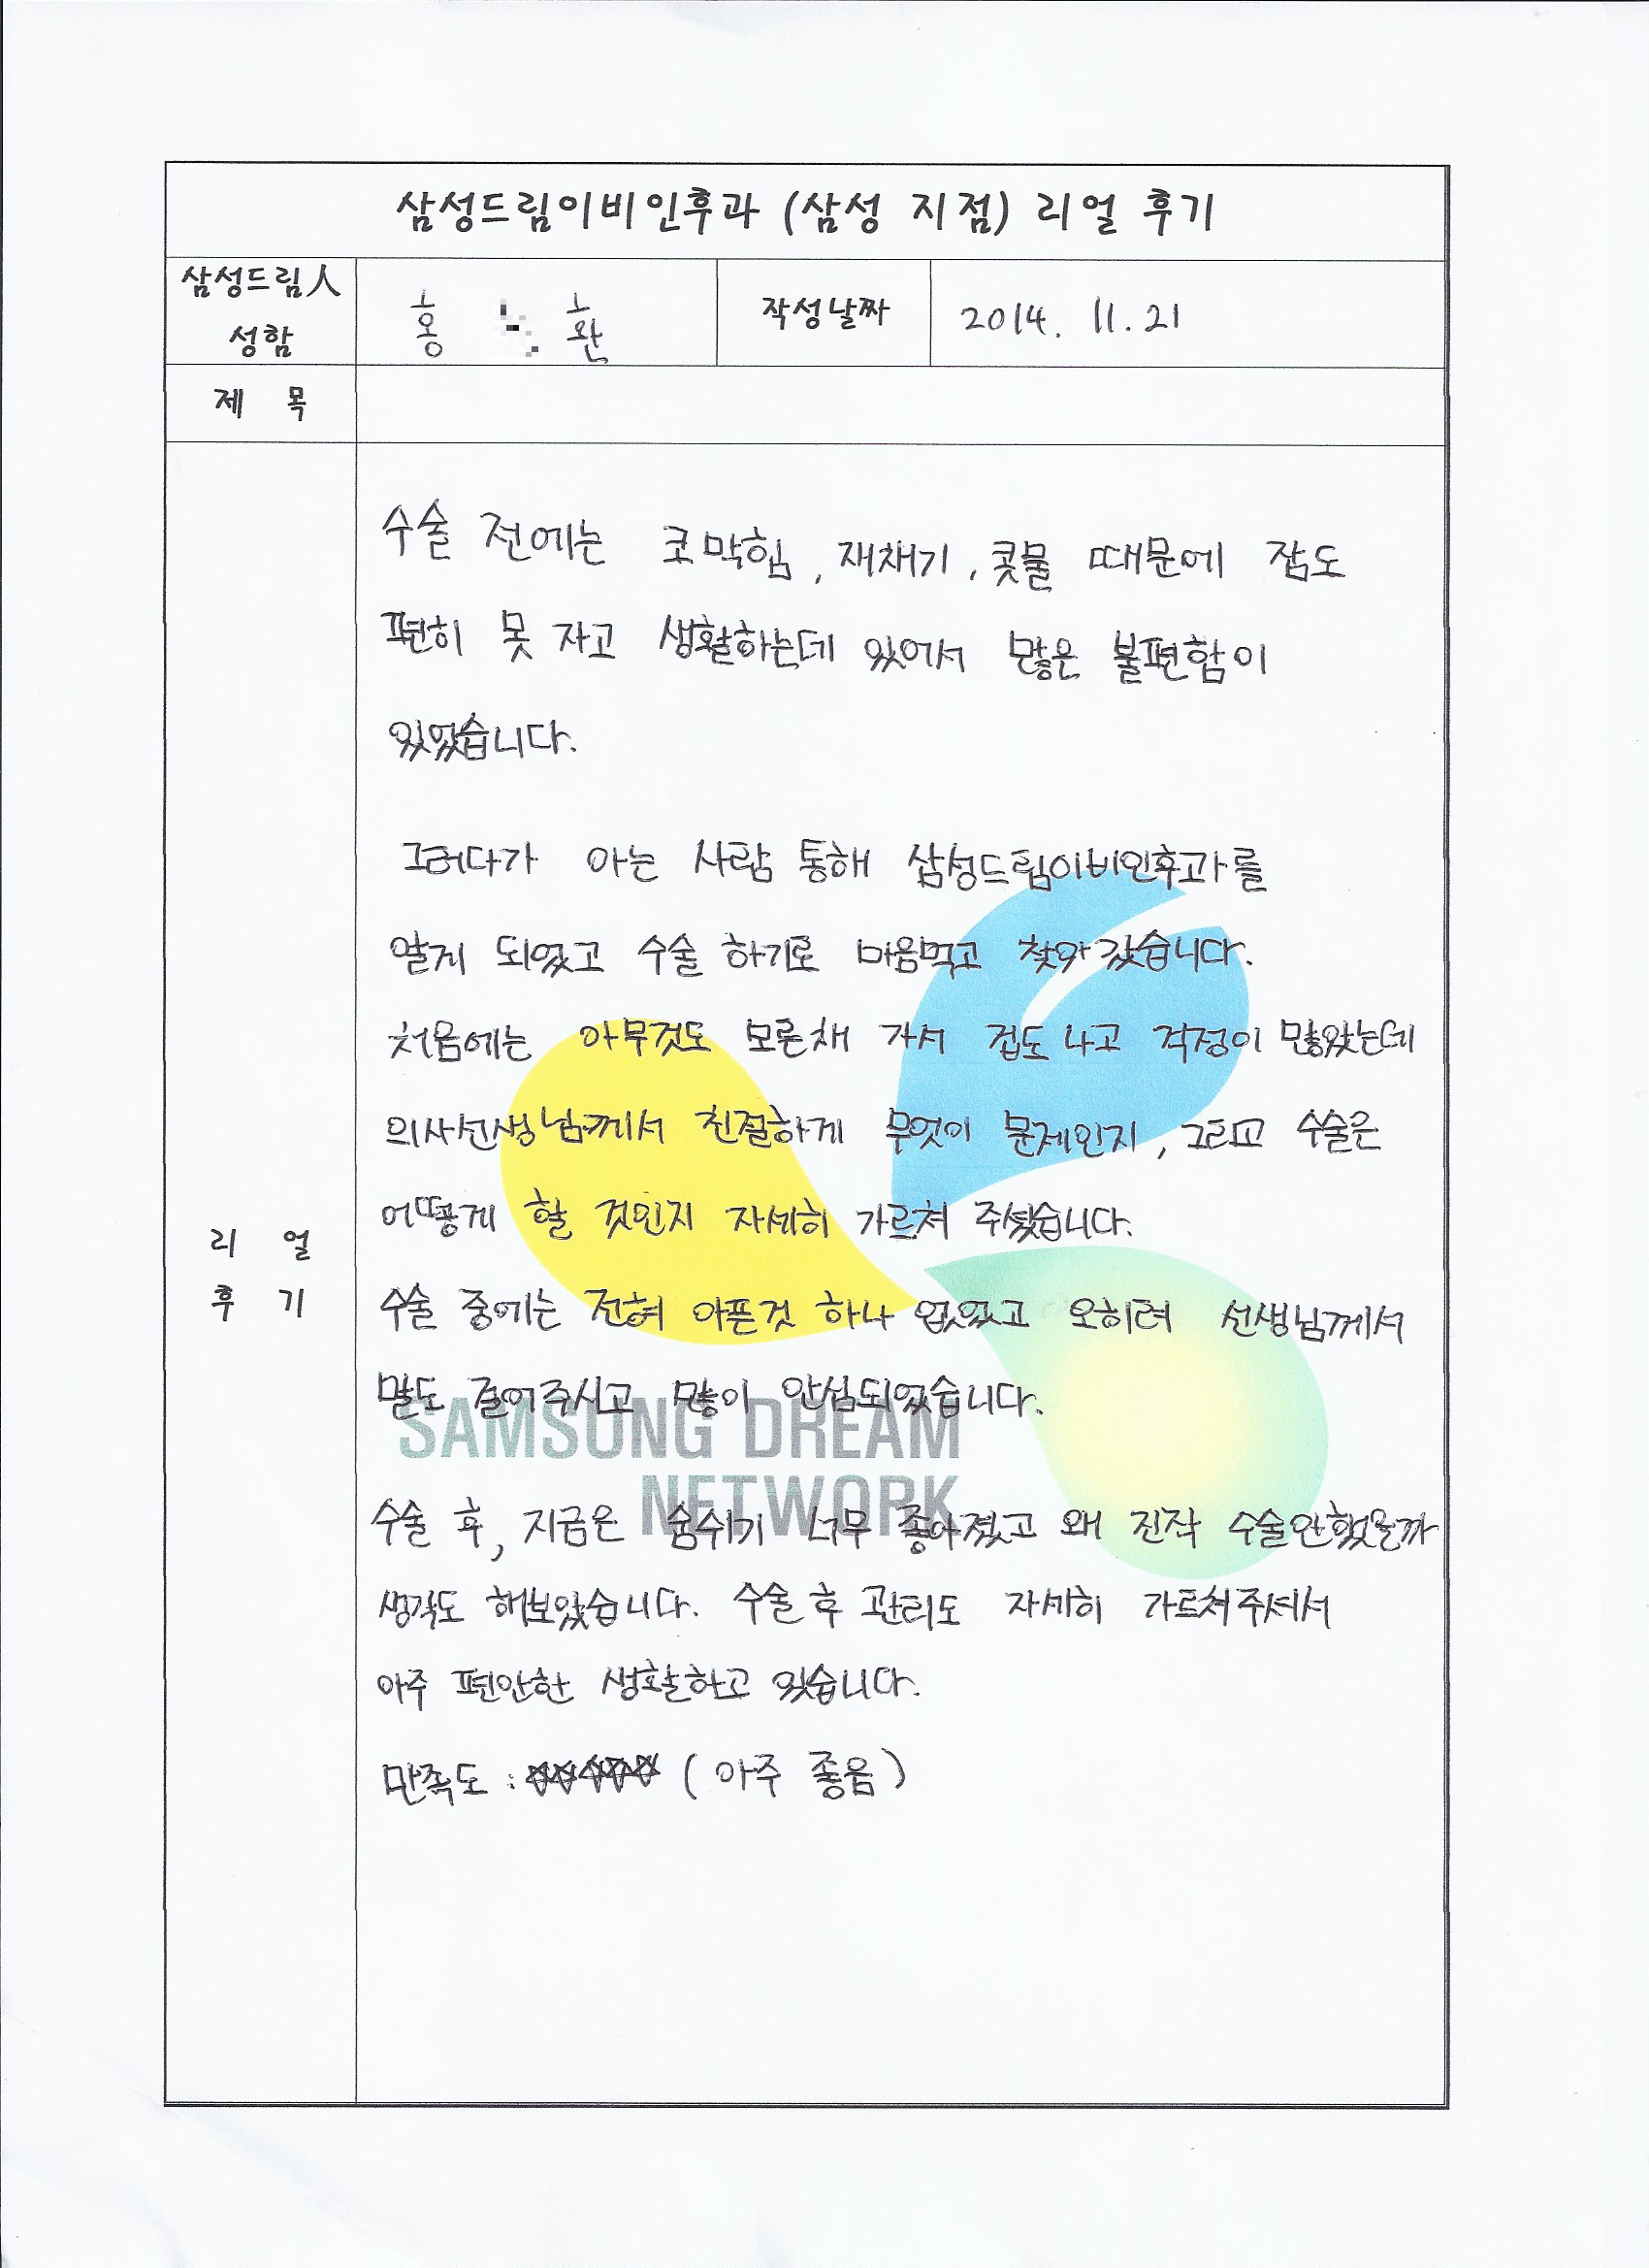 삼성드림이비인후과 (삼성 지점) 리얼 후기
삼성드림人 성함
홍 환
작성날짜
2014. 11. 21
제 목
리 얼
후 기
수술 전에는 코막힘, 재채기, 콧물 때문에 잠도
편히 못 자고 생활하는데 있어서 많은 불편함이
있었습니다.
그러다가 아는 사람 통해 삼성드림이비인후과를
알게 되었고 수술 하기로 마음먹고 찾아 갔습니다.
처음에는 아무것도 모른채 가서 겁도 나고 걱정이 많았는데
의사선생님께서 친절하게 무엇이 문제인지, 그리고 수술은
어떻게 할 것인지 자세히 가르쳐 주셨습니다.
수술 중에는 전혀 아픈것 하나 없었고 오히려 선생님께서
말도 걸어주시고 많이 안심되었습니다.
수술 후, 지금은 숨쉬기 너무 좋아졌고 왜 진작 수술안했을까
생각도 해보았습니다. 수술 후 관리도 자세히 가르쳐주셔서
아주 편안한 생활하고 있습니다.
만족도 : ☆☆☆☆☆ (아주 좋음)
SAMSUNG DREAM
NETWORK